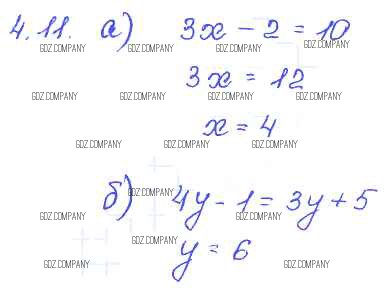 4.11. а) 3x - 2 = 10
GDZ.COMPANY GDZ.COMPANY GDZ.COMPANY GDZ.COMPANY
3x = 12
GDZ.COMPANY GDZ.COMPANY GDZ.COMPANY GDZ.COMPANY
x = 4
GDZ.COMPANY GDZ.COMPANY GDZ.COMPANY
б) 4y - 1 = 3y + 5
GDZ.COMPANY GDZ.COMPANY GDZ.COMPANY
y = 6
GDZ.COMPANY GDZ.COMPANY GDZ.COMPANY